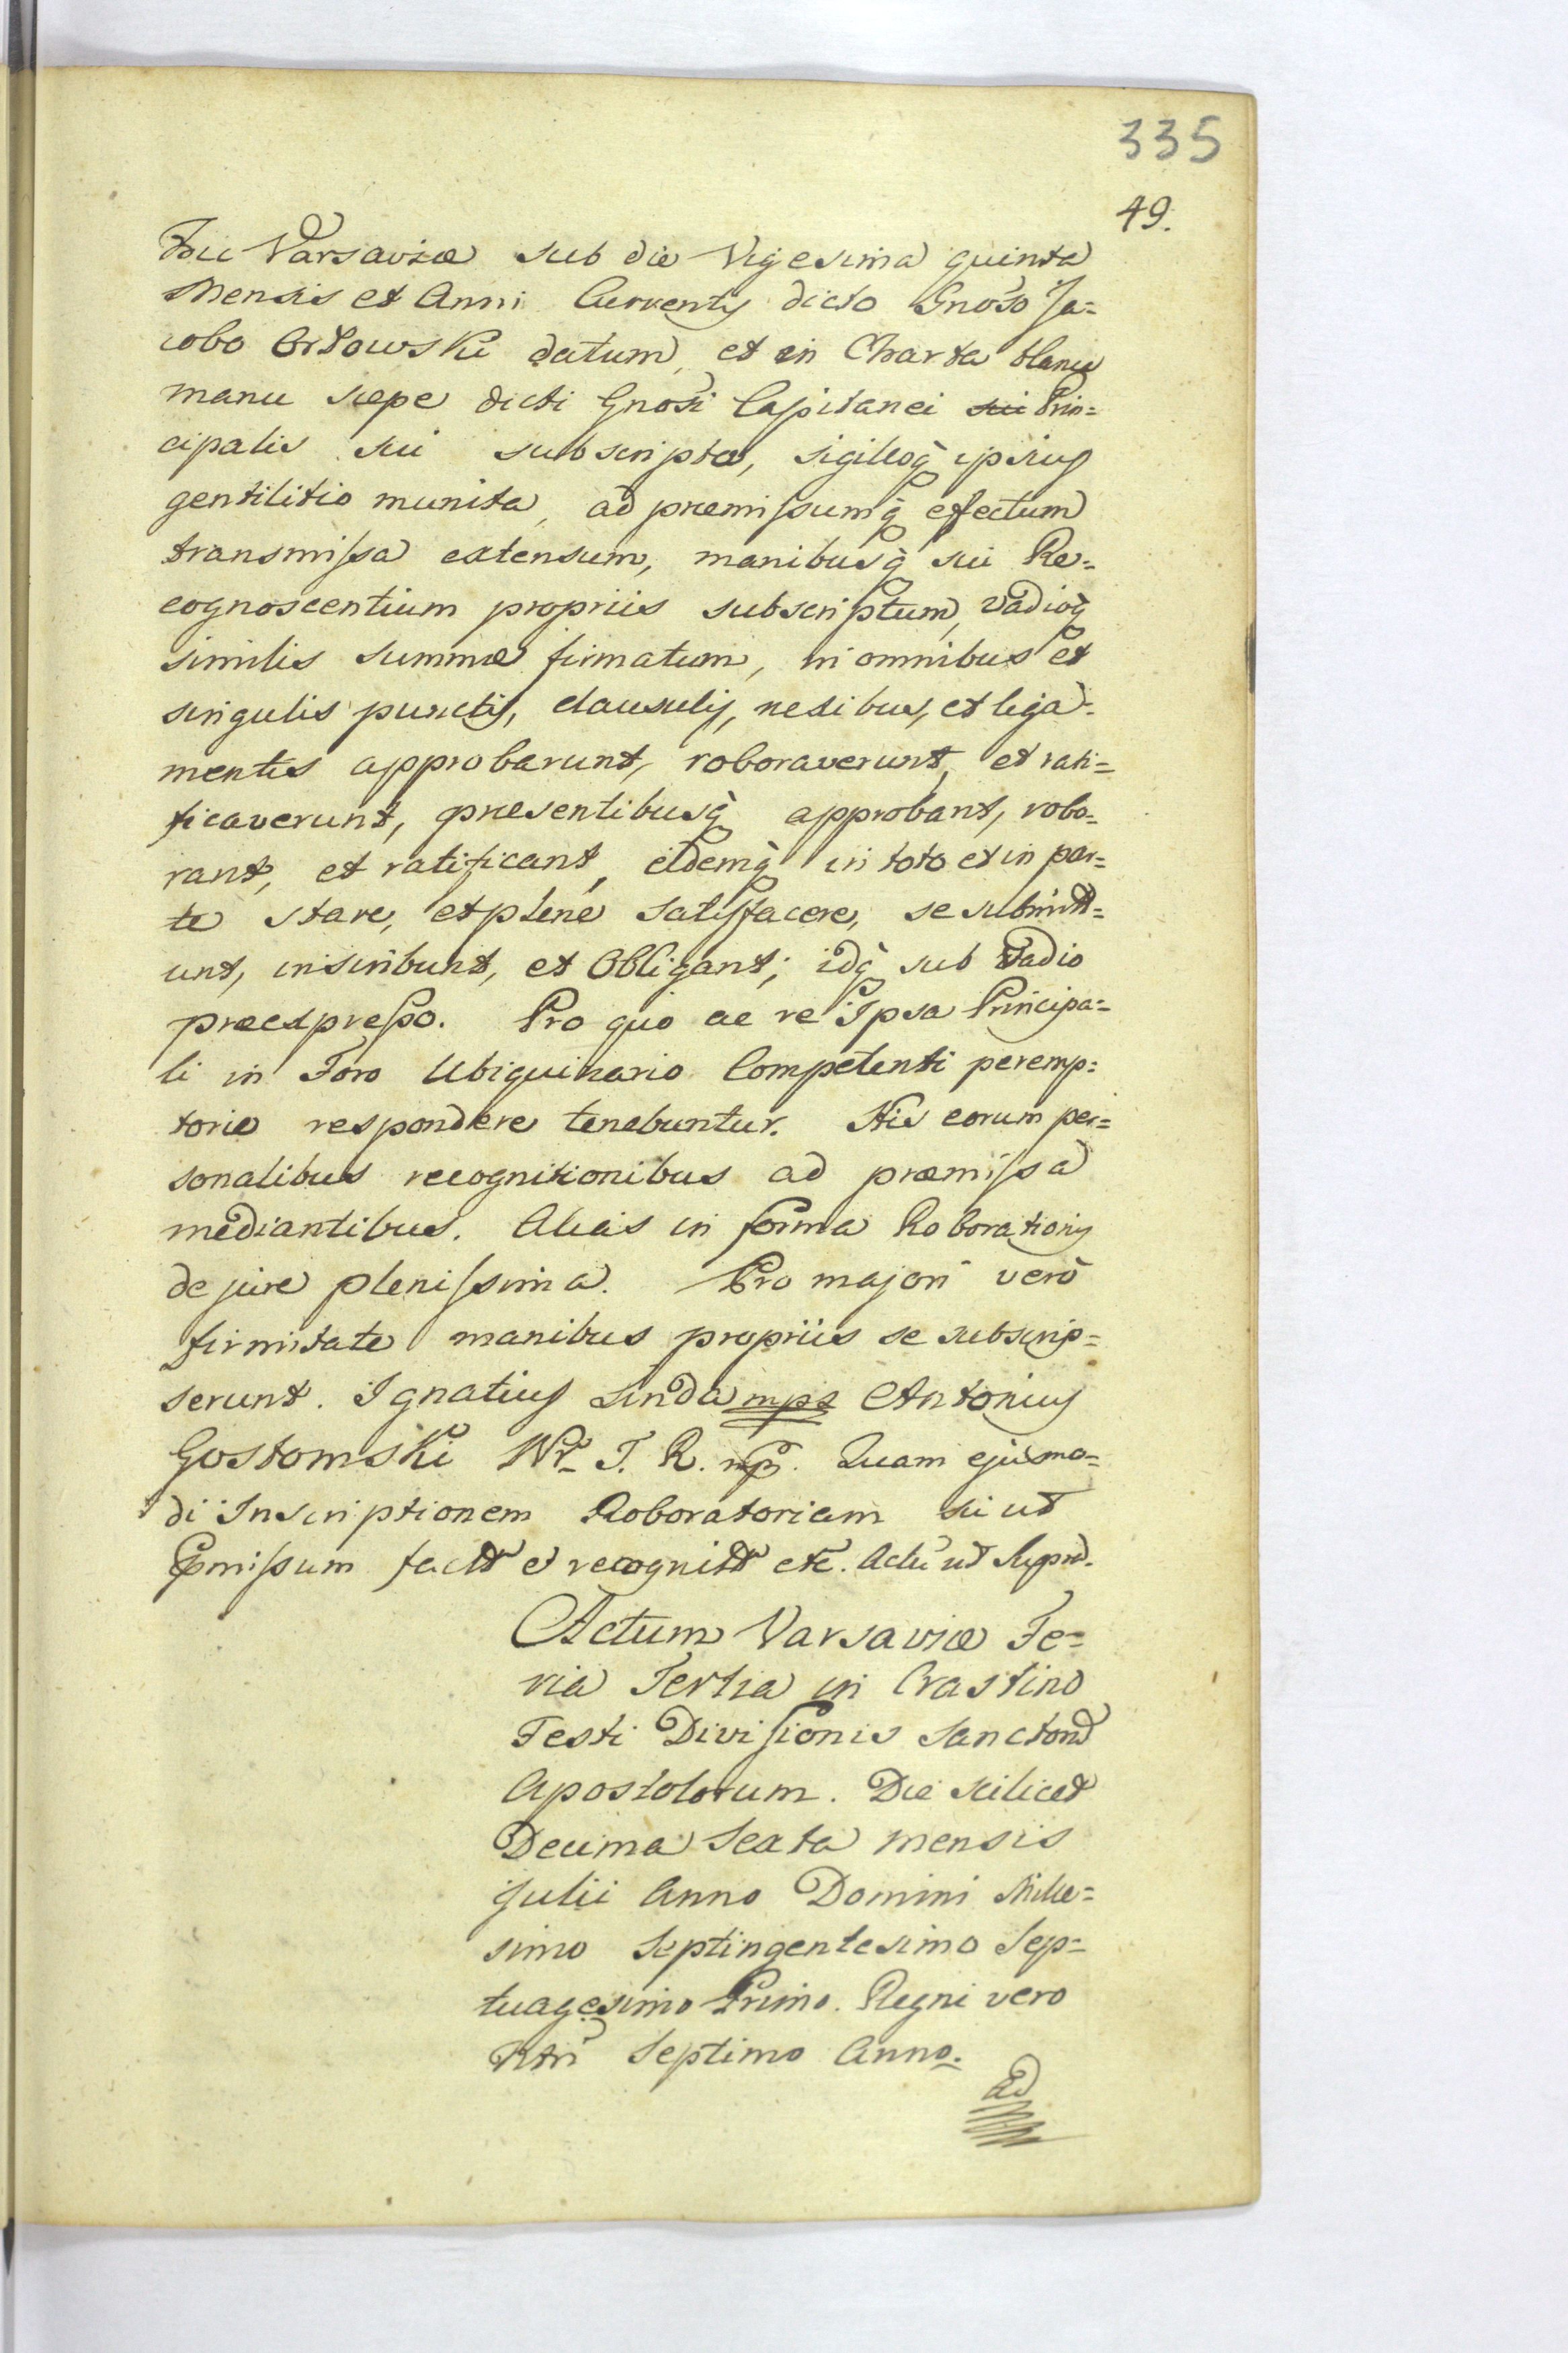 335
49.
hic Varsaviæ sub die Vigesima quinta
Mensis et Anni Currentis dicto Gnoso Ja=
cobo Orłowski datum, et in Charta blanca
manu sæpe dicti Gnosi Capitanei sui Prin=
cipalis sui subscripta, sigilloq̀ ipsius
gentilitio munita, ad præmissumq̀ effectum
transmissa extensum, manibusq̀ sui Re=
cognoscentium propriis subscriptum, Vadioq̀
similis summæ firmatum, in omnibus et
singulis punctis, clausulis, nexibus, et liga=
mentis approbarunt, roboraverunt, et rati=
ficaverunt, præsentibusq̀ approbant, robo=
rant, et ratificant, eidemq̀ in toto et in par=
te stare, et plenè satisfacere, se submitt=
unt, inscribunt, et Obligant; idq̀ sub Vadio
præexpresso. Pro quo ac re Ipsa Principa=
li in Foro Ubiquinario Competenti peremp=
torie respondere tenebuntur. His eorum per=
sonalibus recognitionibus ad præmissa
mediantibus. Alias in forma Roborationis
de jure plenissima. Pro majori verò
firmitate manibus propriis se subscrip=
serunt. Ignatius Linda mpa Antonius
Gostomski W. J. R. mp. Quam ejusmo=
di Inscriptionem Roboratoriam sic ut
Pmissum factt et recognitt etc. Actu ut Supra.
Actum Varsaviæ Fe=
ria Tertia in Crastino
Festi Divisionis Sanctord
Apostolorum. Die scilicet
Decima Sexta mensis
Julii Anno Domini Mille=
simo Septingentesimo Sep=
tuagesimo Primo. Regni vero
Septimo Anno.
Ad